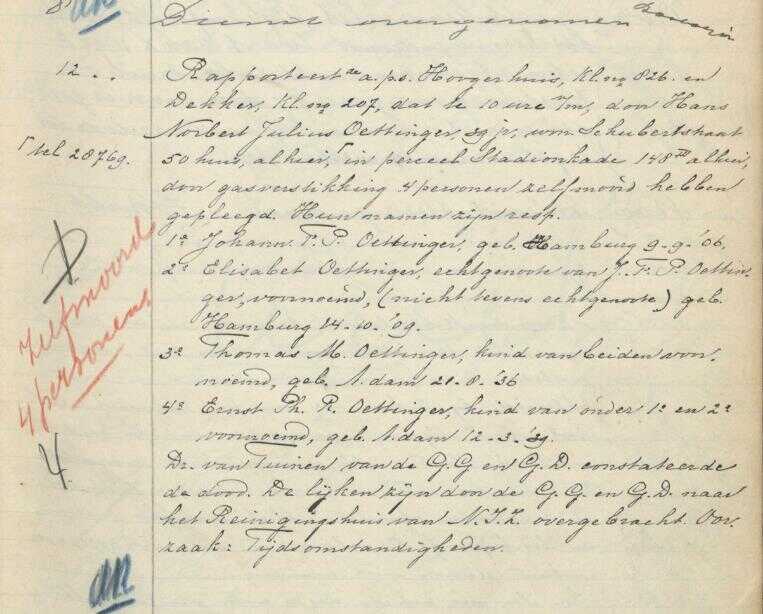 Dienst overgenomen
12 . . Rapporteert a.p.s. Hoogerhuis, Kl. no 826. en
Dekker, Kl. no 207, dat te 10 ure v/m, door Hans
Norbert Julius Oettinger, 39 jr, won. Schubertstraat
Γ tel 28769. 50 huis, alhier, Γ in perceel Stadionkade 148 alhier,
door gasverstikking 4 personen zelfmoord hebben
gepleegd. Hun namen zijn resp.
1e Johann. F. P. Oettinger, geb. Hamburg 9-9-'06.
2e Elisabet Oettinger, echtgenoote van J. F. P. Oettin-
ger, voornoemd, (nicht tevens echtgenoote) geb.
Hamburg 24-10-'09.
3e Thomas M. Oettinger, kind van beiden voor-
noemd, geb. A.dam 21-8-'36
4e Ernst Ph. R. Oettinger, kind van onder 1e en 2e
voornoemd, geb. A.dam 12-3-'39.
Dr. van Tuinen van de G.G. en G.D. constateerde
de dood. De lijken zijn door de G.G. en G.D. naar
het Reinigingshuis van N.I.Z. overgebracht. Oor-
zaak: Tijdsomstandigheden.
Zelfmoord
4 personen
4.